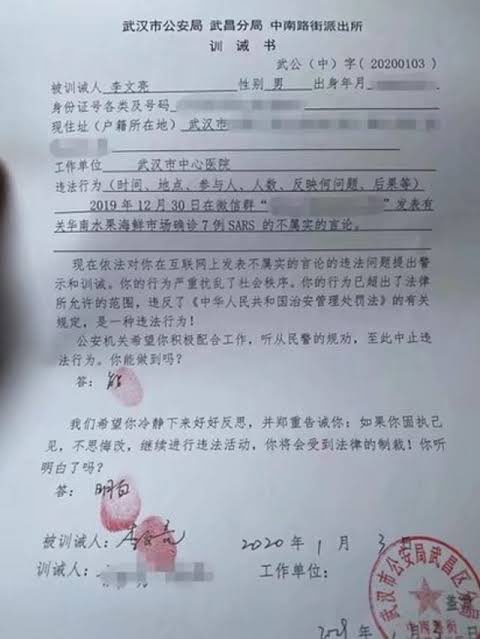 武汉市公安局 武昌分局 中南路街派出所
训 诫 书
武公（中）字（20200103）
被训诫人 李文亮 性别 男 出身年月
身份证号各类及号码
现住址（户籍所在地） 武汉市
工作单位 武汉市中心医院
违法行为（时间、地点、参与人、人数、反映何问题、后果等）
2019年12月30日在微信群“ ”发表有
关华南水果海鲜市场确诊7例SARS的不属实的言论。
现在依法对你在互联网上发表不属实的言论的违法问题提出警
示和训诫。你的行为严重扰乱了社会秩序。你的行为已超出了法律
所允许的范围，违反了《中华人民共和国治安管理处罚法》的有关
规定，是一种违法行为！
公安机关希望你积极配合工作，听从民警的规劝，至此中止违
法行为。你能做到吗？
答：能
我们希望你冷静下来好好反思，并郑重告诫你：如果你固执己
见，不思悔改，继续进行违法活动，你将会受到法律的制裁！你听
明白了吗？
答：明白
被训诫人：李文亮 2020年1月3日
训诫人： 工作单位：
武汉市公安局武昌区
中南路街